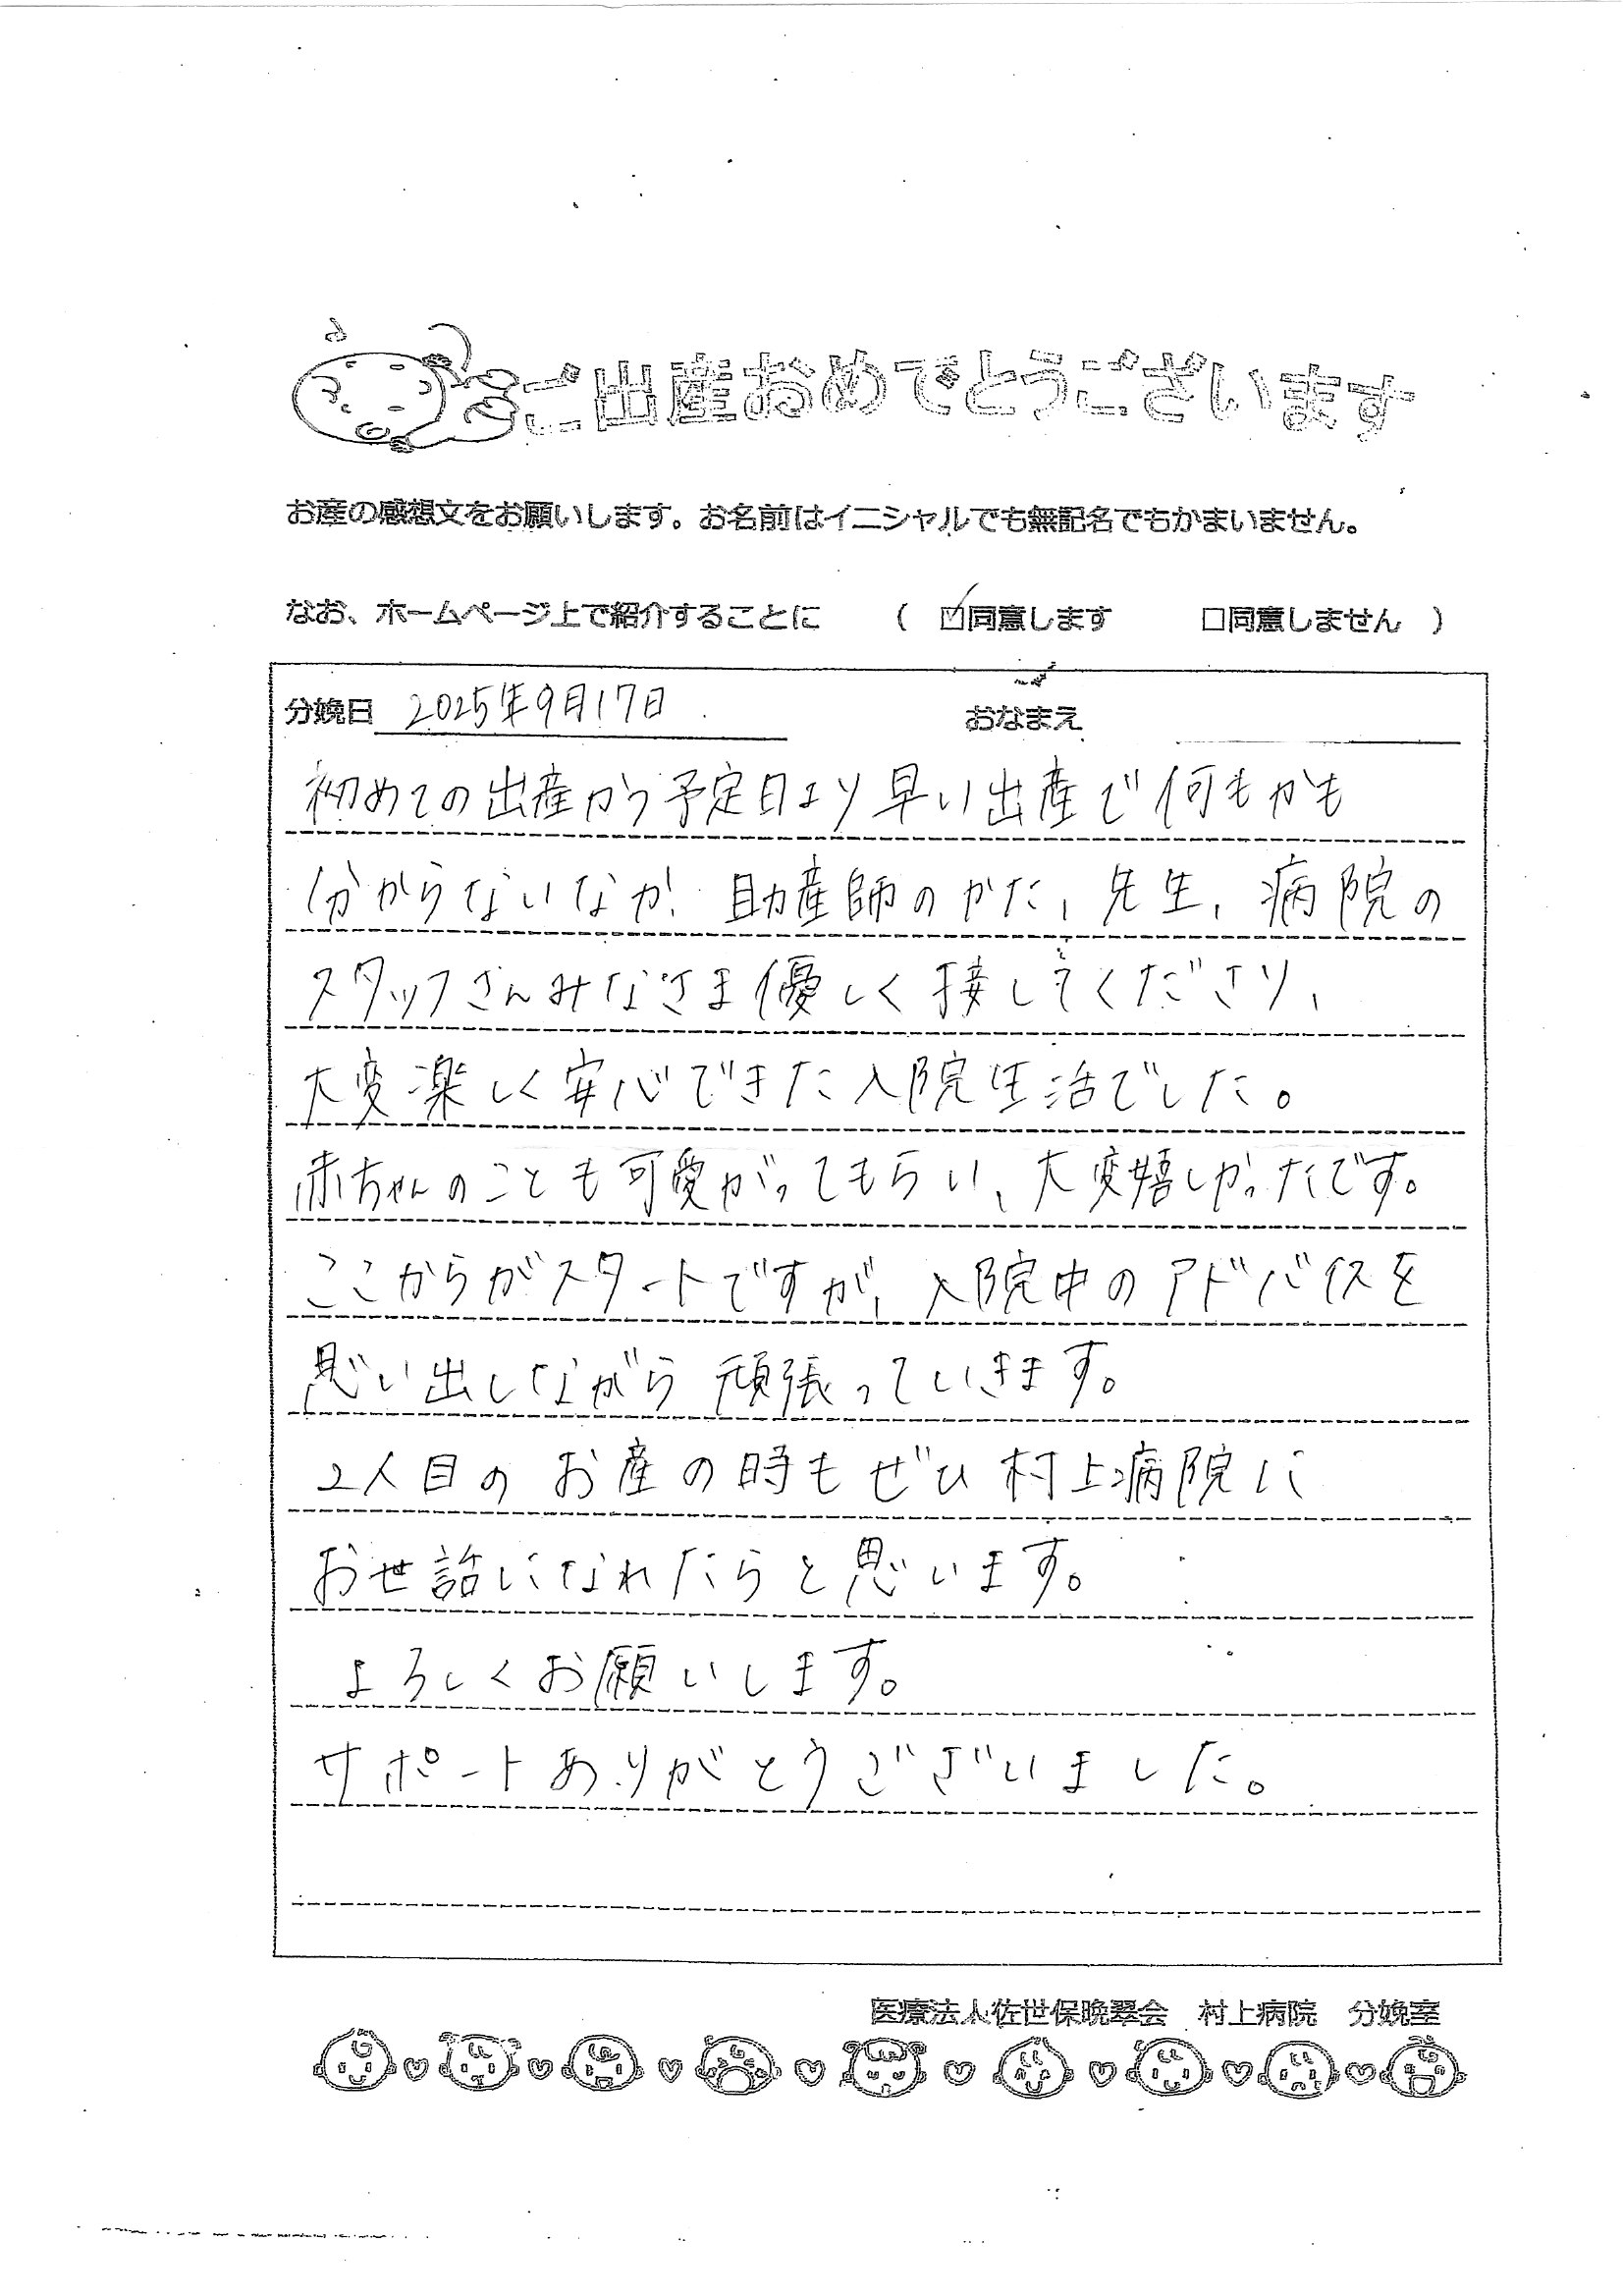 ご出産おめでとうございます
お産の感想文をお願いします。お名前はイニシャルでも無記名でもかまいません。
なお、ホームページ上で紹介することに （ ☑同意します □同意しません ）
分娩日 2025年9月17日 おなまえ
初めての出産かつ予定日より早い出産で何もかも
分からないなか、助産師のかた、先生、病院の
スタッフさんみなさま優しく接してくださり、
大変楽しく安心できた入院生活でした。
赤ちゃんのことも可愛がってもらい、大変嬉しかったです。
ここからがスタートですが、入院中のアドバイスを
思い出しながら頑張っていきます。
2人目のお産の時もぜひ村上病院に
お世話になれたらと思います。
よろしくお願いします。
サポートありがとうございました。
医療法人佐世保晩翠会 村上病院 分娩室